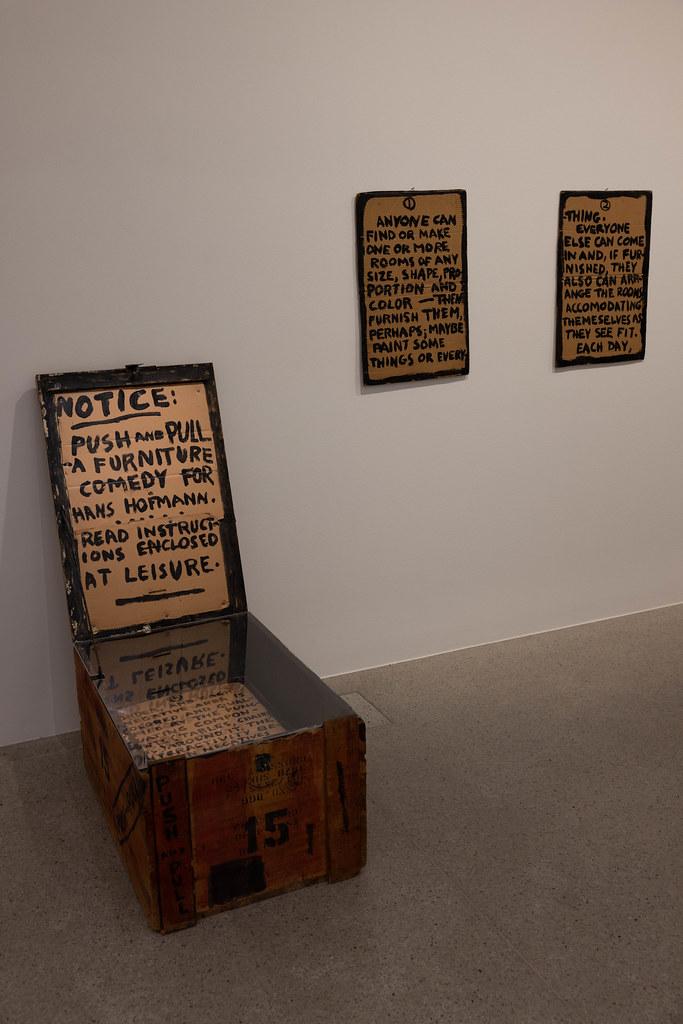 NOTICE:
PUSH AND PULL
-A FURNITURE
COMEDY FOR
HANS HOFMANN.
READ INSTRUCT-
IONS ENCLOSED
AT LEISURE.
①
ANYONE CAN
FIND OR MAKE
ONE OR MORE
ROOMS OF ANY
SIZE, SHAPE, PRO
PORTION AND
COLOR — THEN
FURNISH THEM,
PERHAPS; MAYBE
PAINT SOME
THINGS OR EVERY
②
THING.
EVERYONE
ELSE CAN COME
IN AND, IF FUR-
NISHED, THEY
ALSO CAN ARR-
ANGE THE ROOMS
ACCOMODATING
THEMESELVES AS
THEY SEE FIT.
EACH DAY,
PUSH AND PULL
15